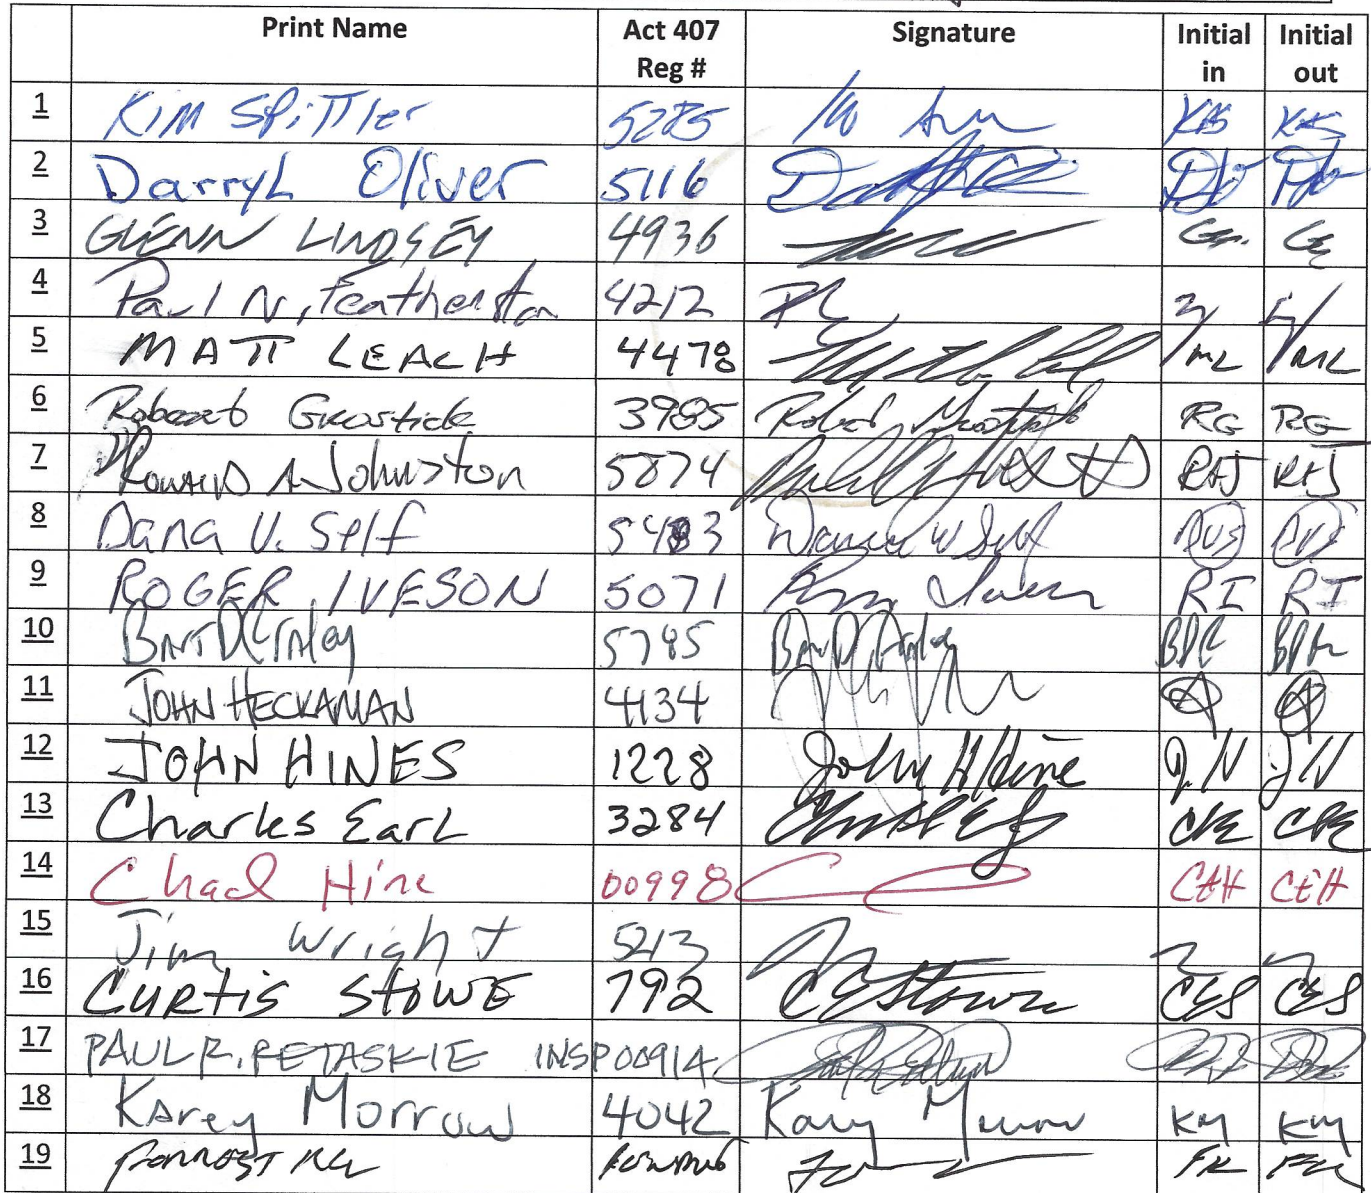 Print Name Act 407 Reg # Signature Initial in Initial out
1 Kim Spittler 5225 KAS KAS
2 Darryl Oliver 5116 DO DO
3 GLENN LINDSEY 4936
4 Paul N. Featherston 4212
5 MATT LEACH 4478 ML ML
6 Robert Grostick 3985 Robert RG RG
7 RONALD A Johnston 5874 RAJ RAJ
8 Dana V. Self 5483 DVS DVS
9 ROGER IVESON 5071 RI RI
10 5785
11 JOHN HECKAMAN 4134
12 JOHN HINES 1228 John H Hine JH JH
13 Charles Earl 3284 CRE CRE
14 Chad Hine 00998 CEH CEH
15 Jim Wright 5213
16 CURTIS STOWE 792 CES CES
17 PAUL R. PETASKIE INSP00914
18 Karey Morrow 4042 KM KM
19 FORREST